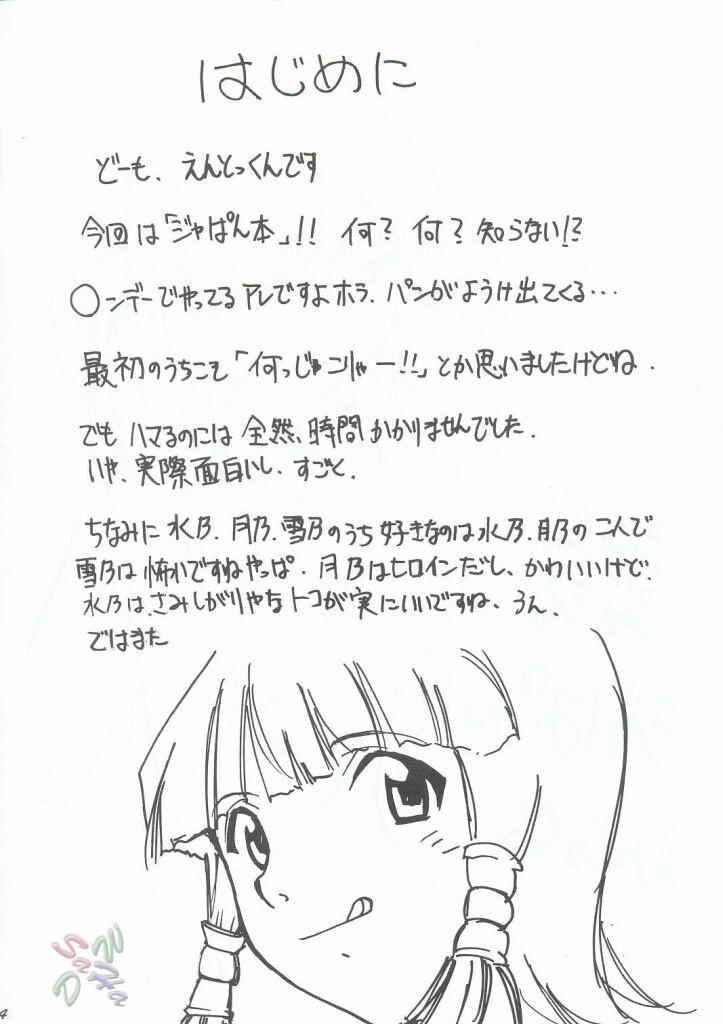 はじめに
どーも、えんとっくんです
今回は「ジャぱん本」!! 何? 何? 知らない!?
○ンデーでやってるアレですよホラ、パンがようけ出てくる…
最初のうちこそ「何っじゃこりゃー!!」とか思いましたけどね.
でもハマるのには全然、時間かかりませんでした.
いや、実際面白いし、すごと.
ちなみに水乃、月乃、雪乃のうち好きなのは水乃、月乃の二人で
雪乃は怖いですねやっぱ. 月乃はヒロインだし、かわいいけど、
水乃はさみしがりやなトコが実にいいですね、うん.
ではまた
4